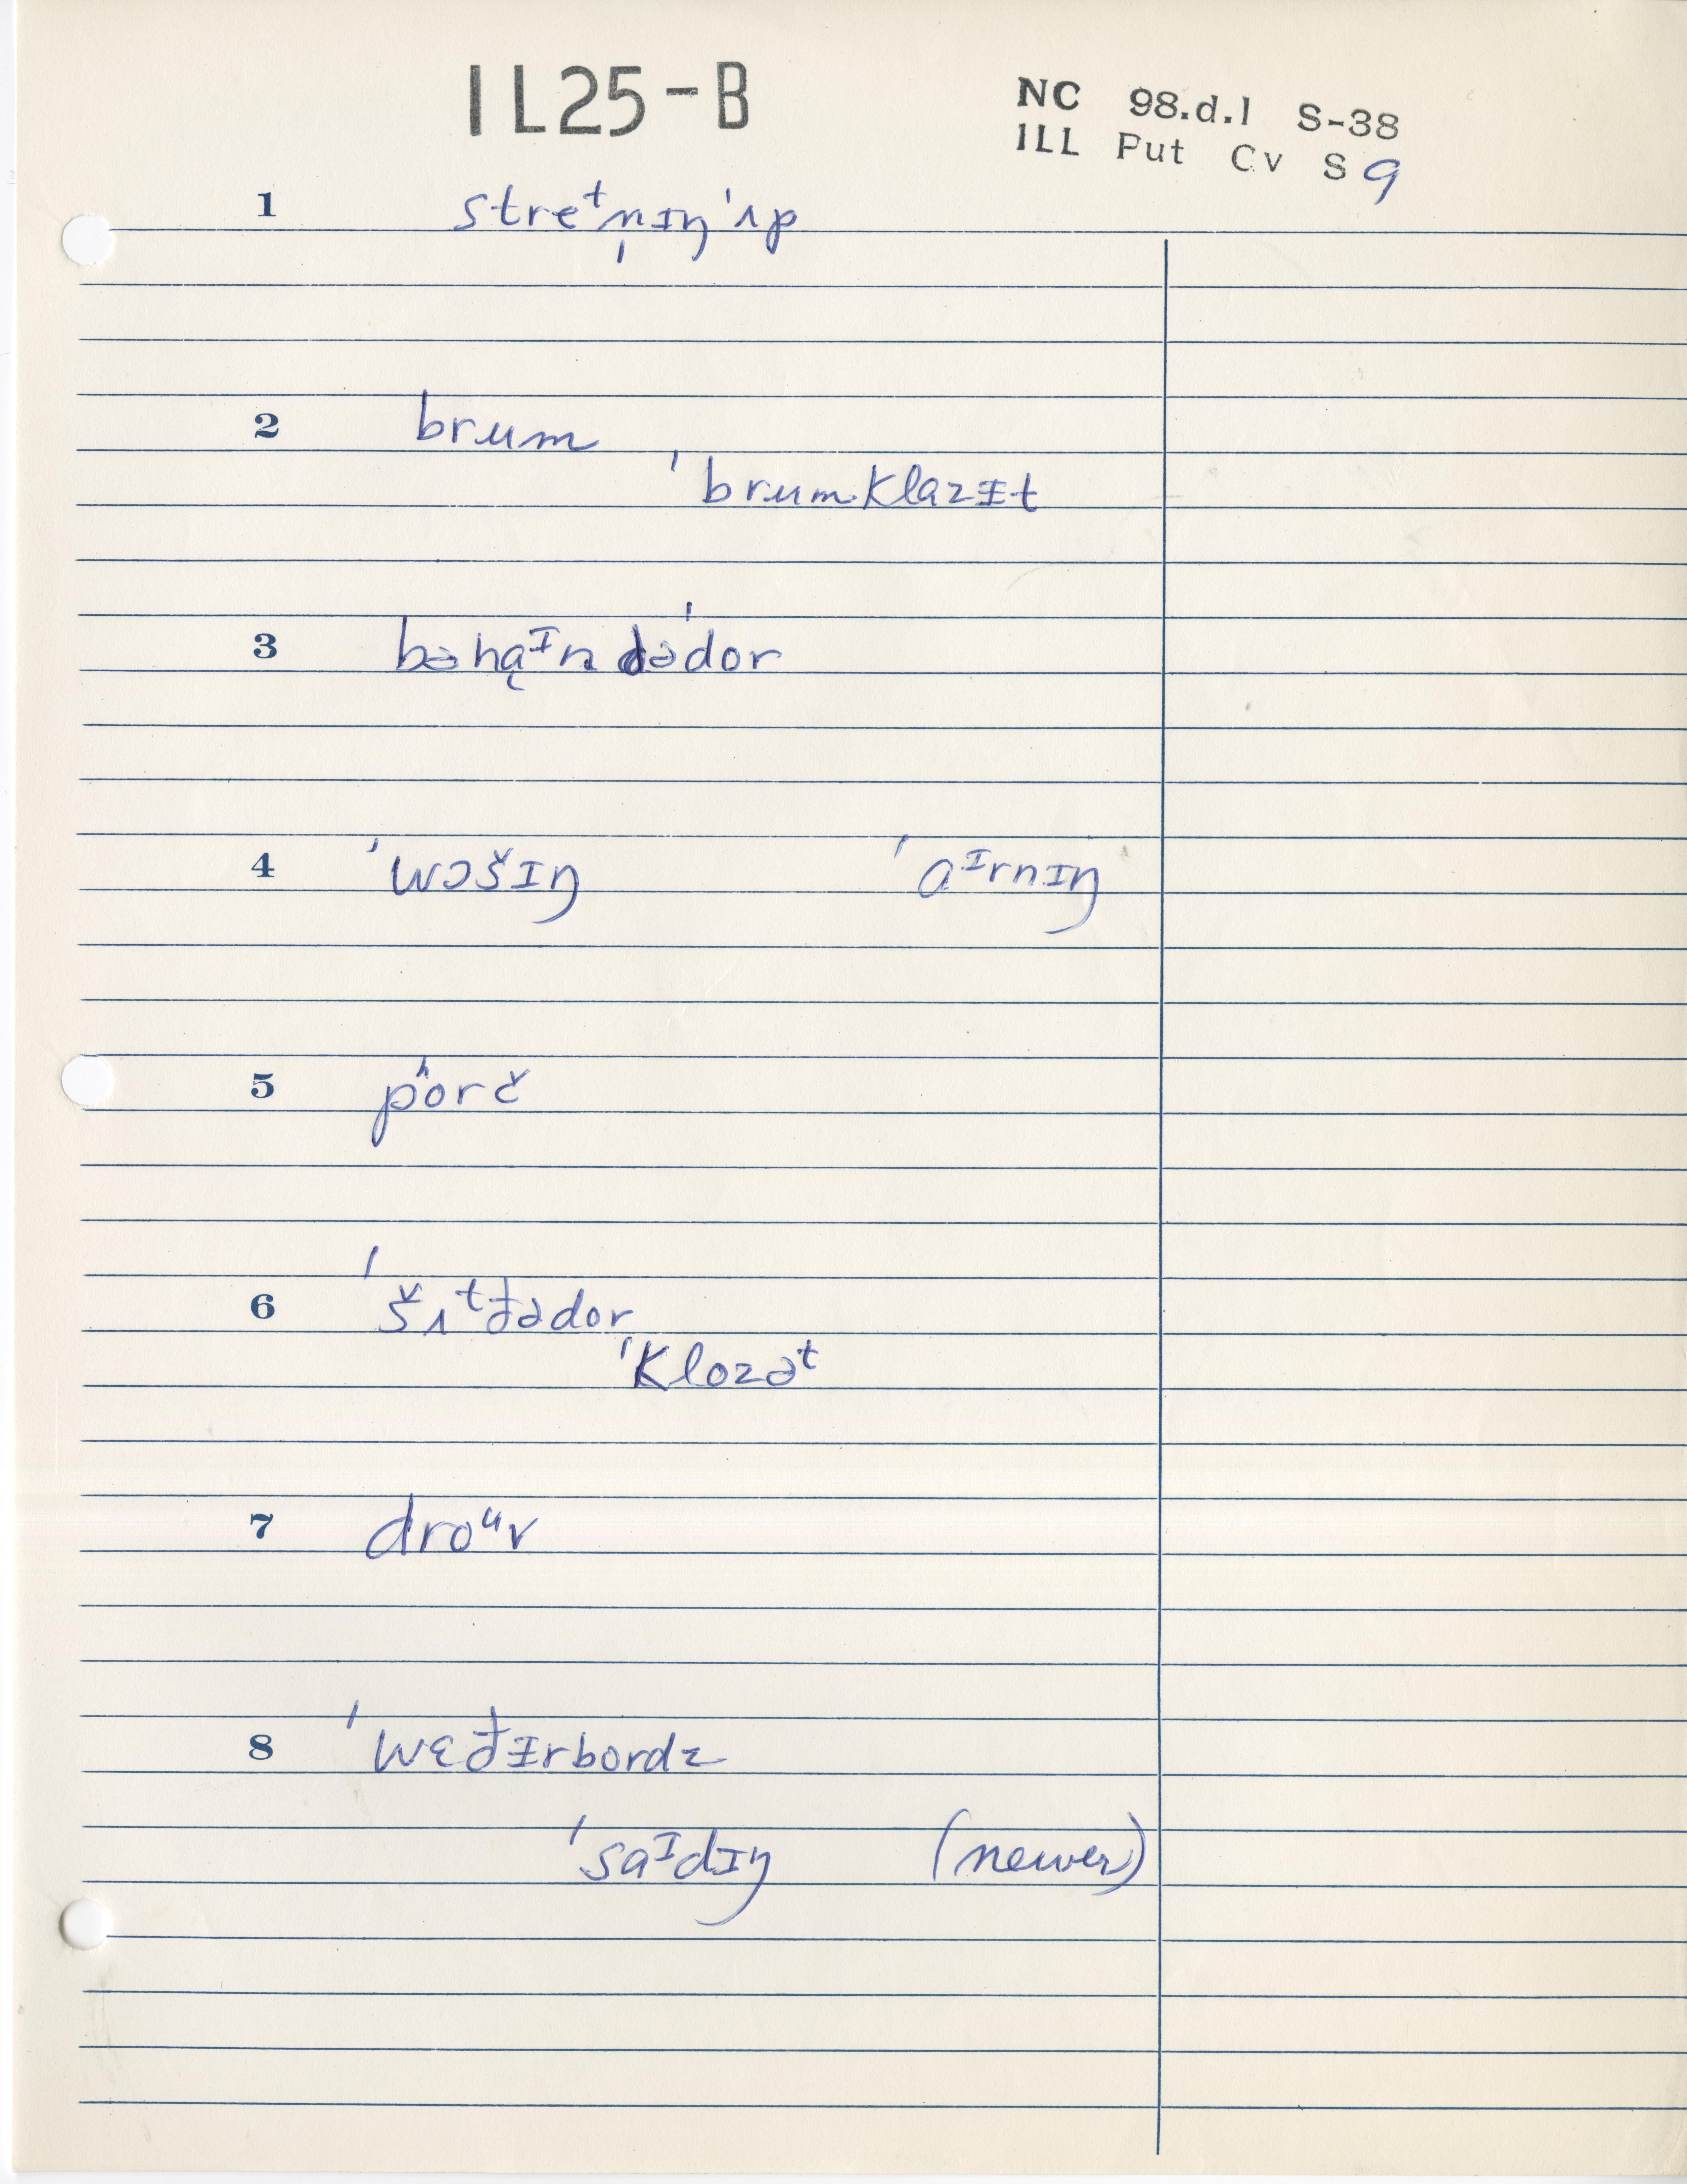 IL25-B
NC 98.d.1 S-38
ILL Put Cv S 9
1 streᵗn̩ɪŋˈʌp
2 brum
ˈbrumklazɪt
3 bəhɑ̨ᶦn dəˈdor
4 ˈwɔšɪŋ ˈaᶦrnɪŋ
5 pʰorč
6 ˈšʌᵗđədor
ˈklozəᵗ
7 droᵘv
8 ˈwɛđɪrbordz
ˈsaᶦdɪŋ (newer)